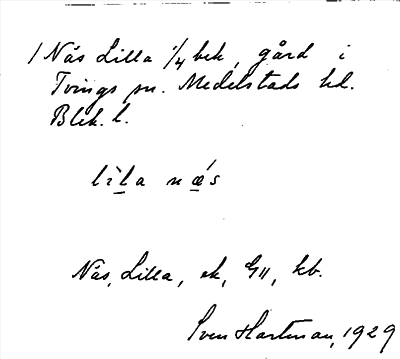 / Näs Lilla 1/4 bek, gård i
Tvings sn. Medelstads hd.
Blek. l.
lìl̲a nǽ̲s
Näs, Lilla, ek, G11, kb.
Sven Hartman, 1929